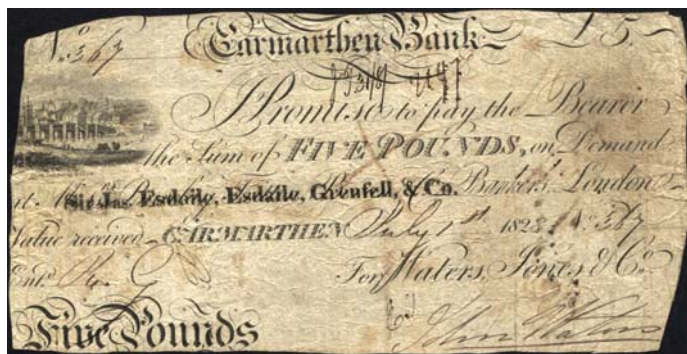 No. 367 Carmarthen Bank £5
I Promise to pay the Bearer
the Sum of FIVE POUNDS, on Demand
Sir Jas. Esdaile, Esdaile, Grenfell, & Co. Bankers, London
Value received CARMARTHEN July 1st 1828 No. 367
Entd. For Waters, Jones & Co.
Five Pounds John Waters